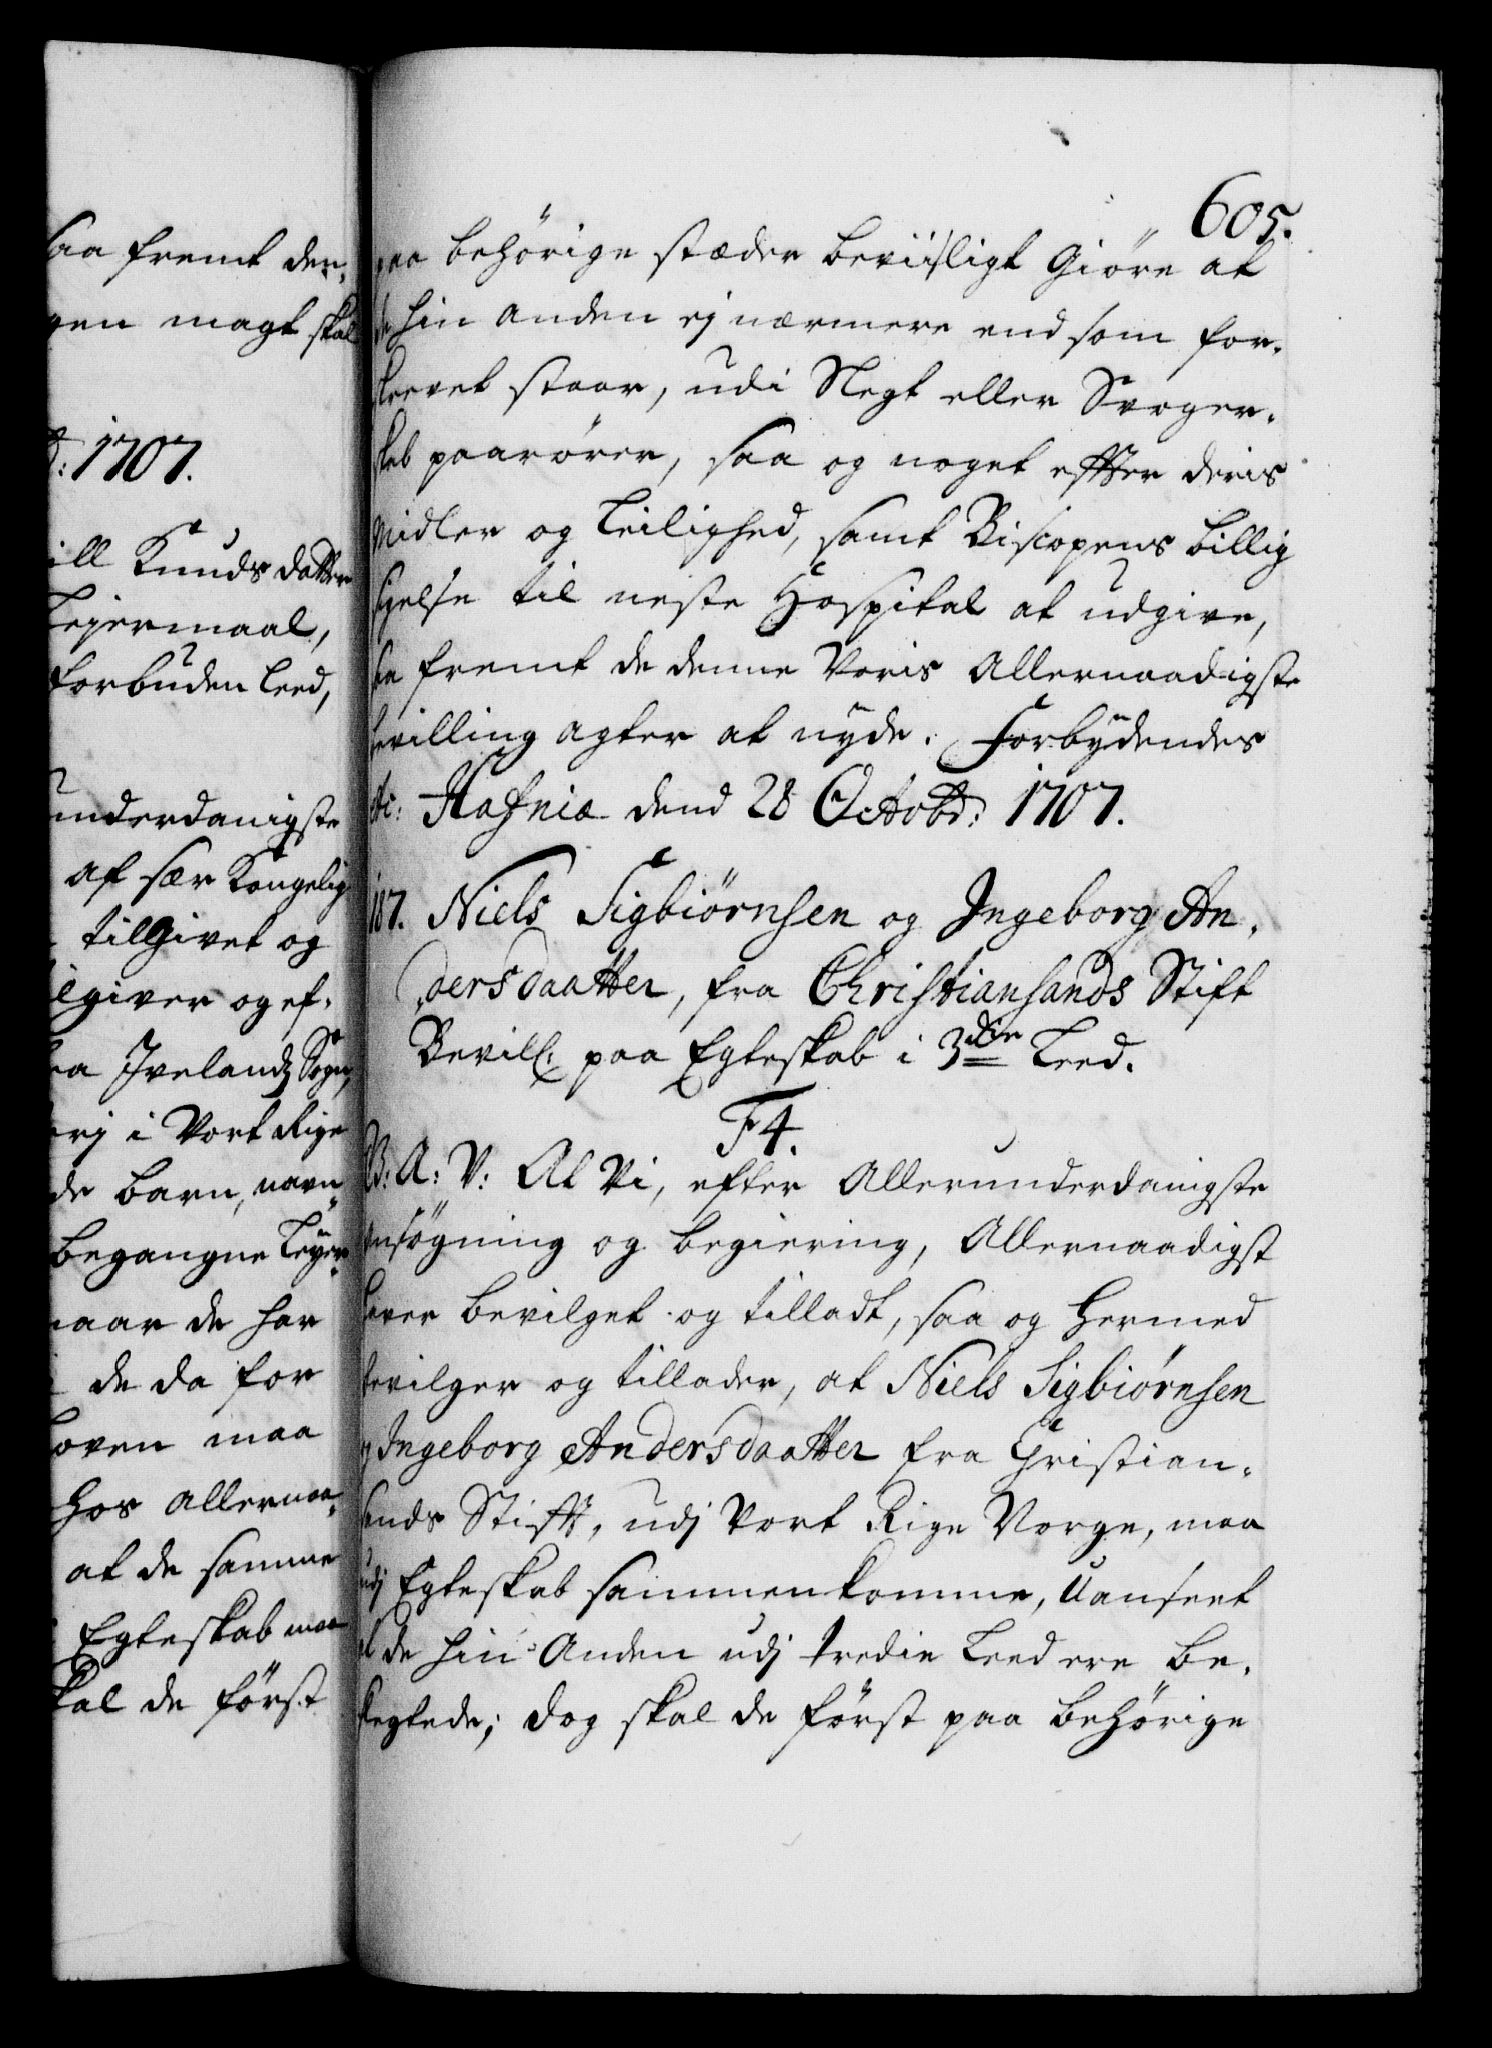 saa fremt den¬
gen magt skal
1707.
ill Knuds datter
Lejermaal,
forbuden Leed,
underdanigste
af sær Kongelig
tilgivet og
lgiver og ef¬
Ivelandz Sogn,
i Vort Rige
de barn, navn¬
begangne Leyer¬
naar de har
de da for
Loven maa
hos allernaa¬
at de samme
Egteskab maa
skal de först
605.
paa behörige stæder beviisligt Giöre at
de hin anden ej nærmere end som for¬
skrevet staar, udi Slegt eller Svoger¬
skab paarörer, saa og noget effter deris
Midler og Leilighed, samt Biscopens billig
sigelse til neste Hospital at udgive,
saa fremt de denne Voris Allernaadigste
bevilling agter at nyde. Forbydendes
etc: Hafniæ dend 28 Octobr: 1707.
187. Niels Sigbiörnsen og Ingeborg An¬
dersdaatter, fra Christiansands Stift
Bevill: paa Egteskab i 3die Leed.
F4.
B: A: V: At Vi, efter Allerunderdanigste
Ansögning og begiering, Allernaadigst
haver bevilget og tilladt, saa og hermed
bevilger og tillader, at Niels Sigbiörnsen
og Ingeborg Andersdaatter fra Christian¬
sands Stifft, udj Vort Rige Norge, maa
udj Egteskab sammenkomme, Uanseet
at de hin Anden udj tredie Leed ere be¬
slegtede; dog skal de först paa behörige